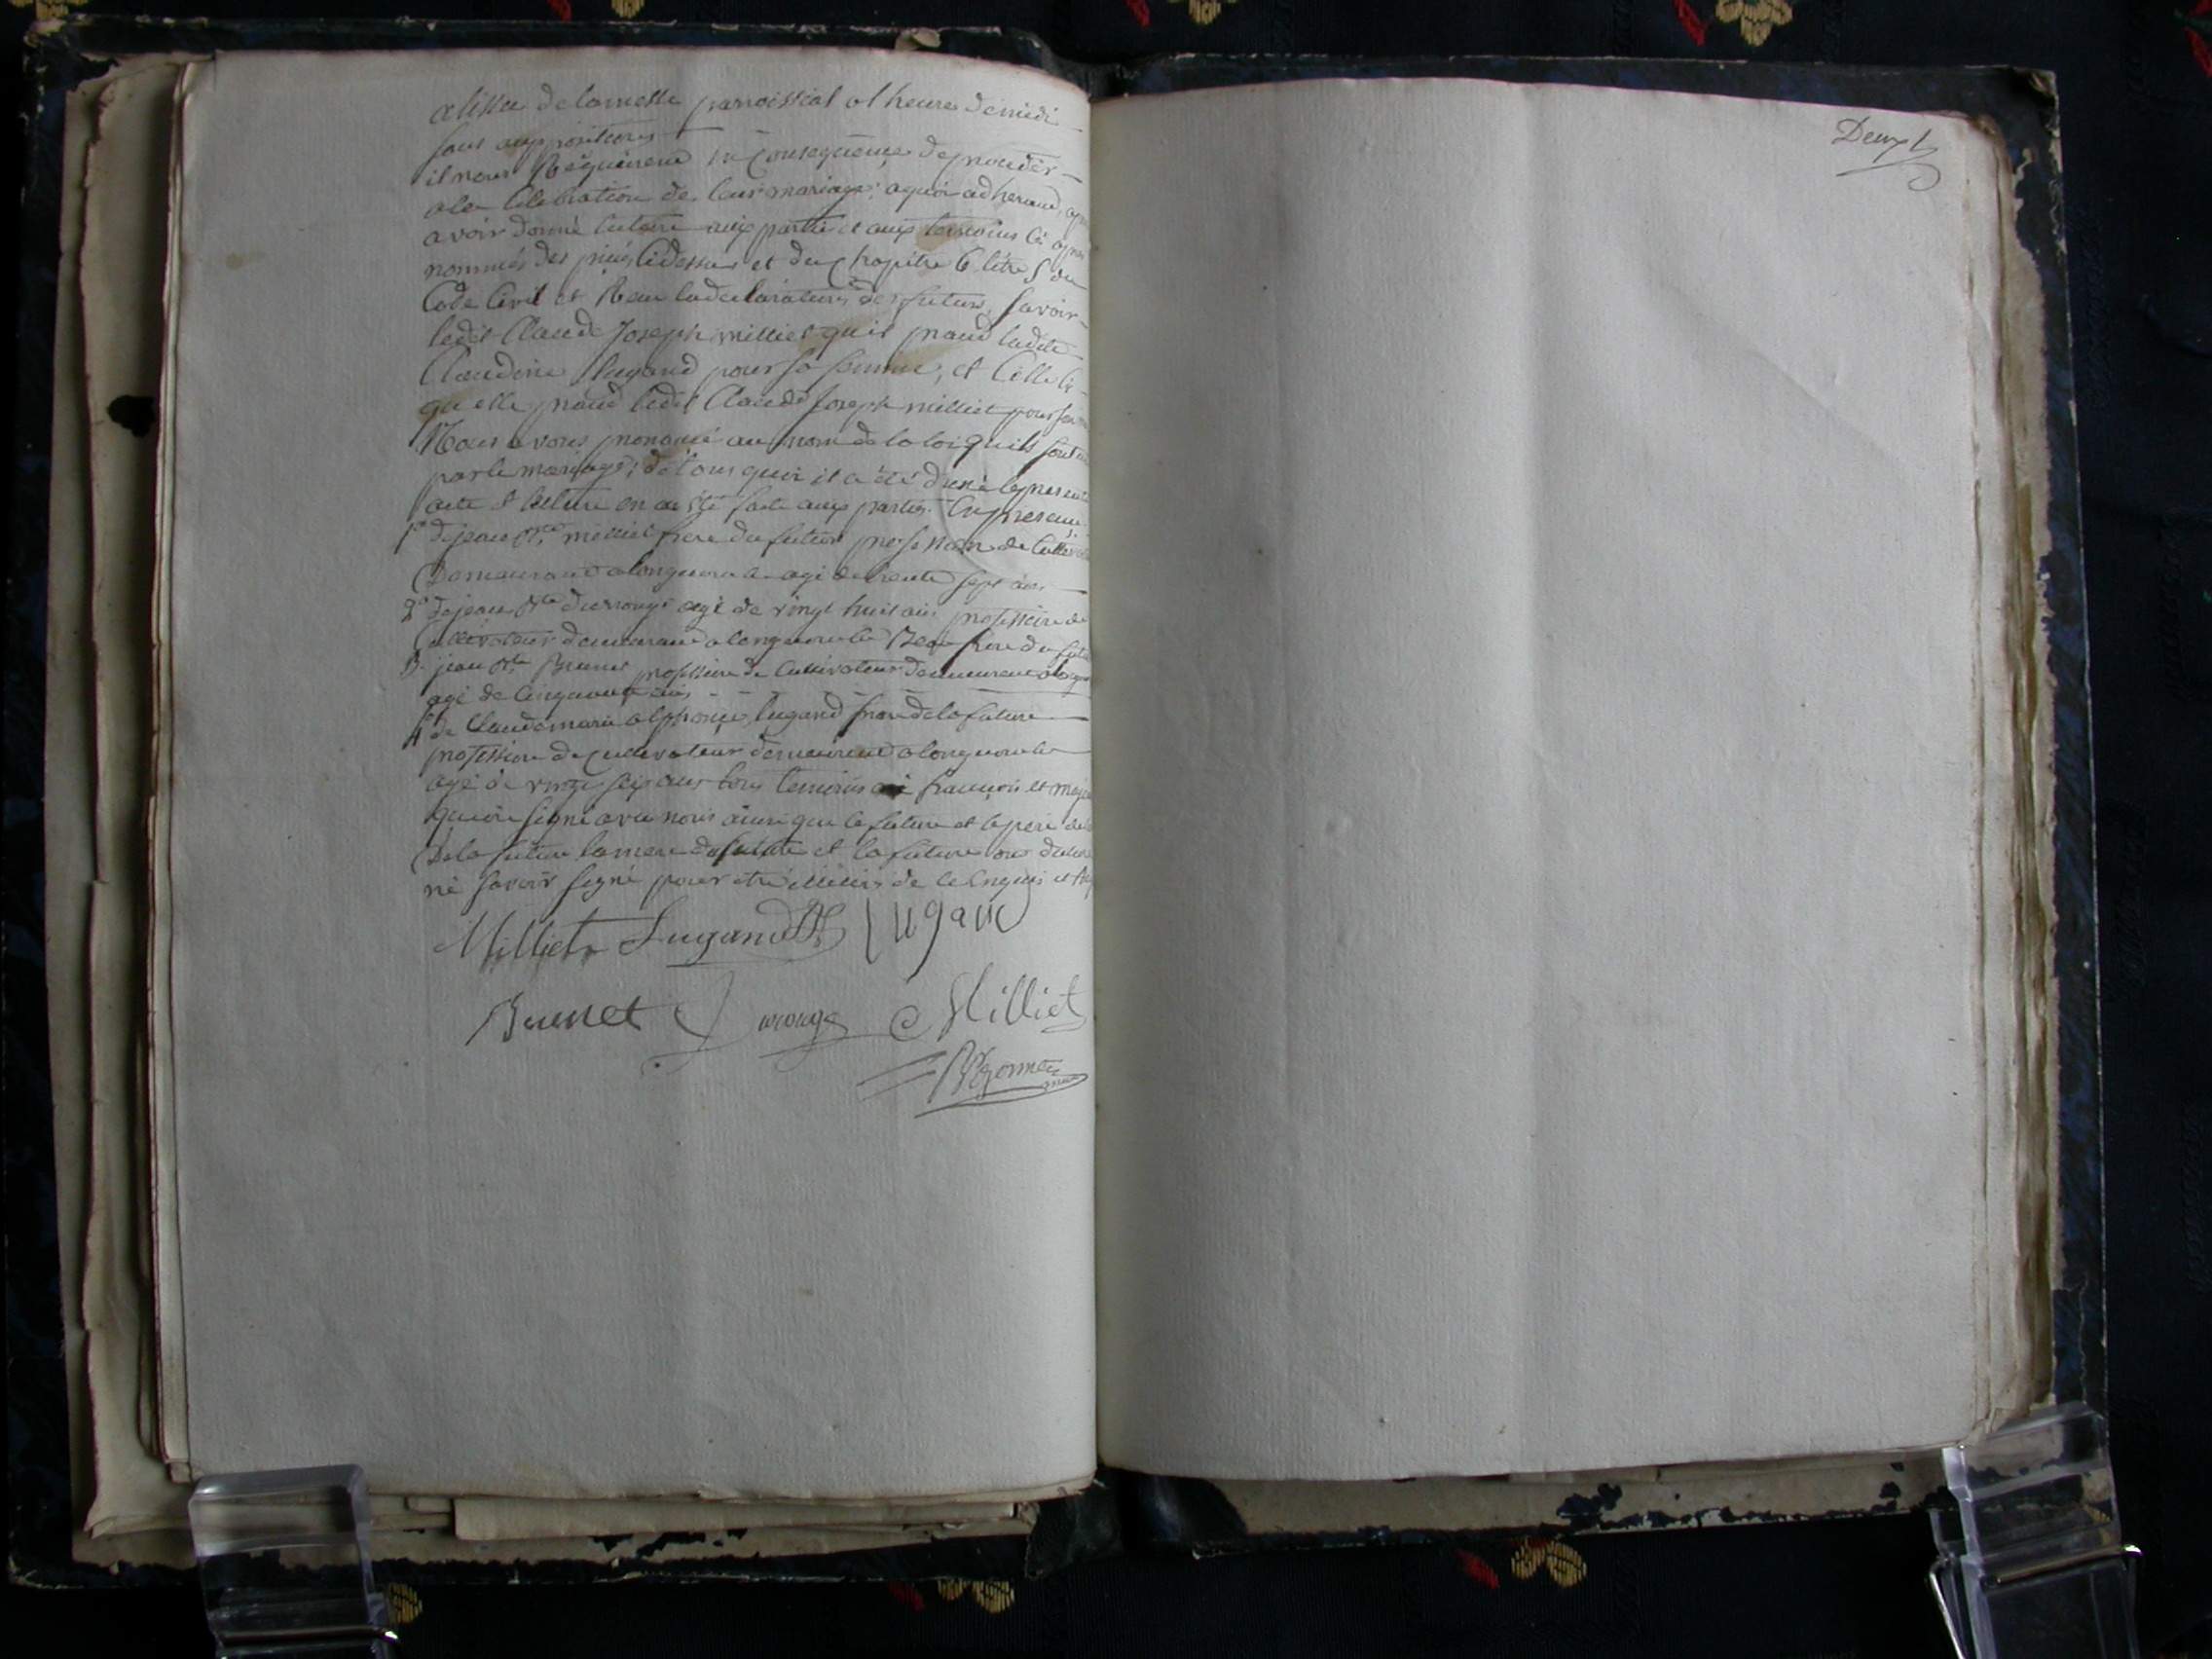 a lissue de la messe parroissial a lheure de midi
sans oppositions
il nous Requierent en Consequence de proceder
a la Celebration de leur mariage; aquoi adherand, apres
avoir donné lecture aux partie et aux temoins Ci apres
nommés des pieces Cidessus et du Chapitre 6 titre 5 du
Code Civil et Recu la declarations des futurs, savoir
ledit Claude Joseph milliet quil prand ladite
Claudine lugand pour sa femme, et Celle Ci
quelle prand ledit Claude Joseph milliet pour son
Nous avons prononcé au nom de la loi quils sont
par le mariage; de tous quoi il a été dressé le present
acte et lecture en a été faite aux parties. En presence
1° de jean Bte milliet frere du futur profession de Cultivateur
Demeurant a longecombe agé de trente sept ans
2° de jean Bte durrouge agé de vingt huit ans profession de
Cultivateur demeurant a longecombe Beau frere du futur
3° jean Bte Brunet profession de Cultivateur demeurant
agé de Cinquante ans
4° de Claude marie alphonse lugand frere de la future
profession de Cultivateur demeurant a longecombe
agé de vingt six ans tous temoins françois et majeurs
qui ont signé avec nous ainsi que le future et le pere
De la future la mere du future et la future ont declaré
ne savoir signé pour etre illitéré de ce Enquis et
Milliet Lugand Lugand
Brunet Durouge Milliet
maire
Deuxt